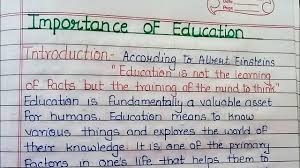 Date
Importance of Education
Introduction:- According to Albert Einsteins
"Education is not the learning
of facts but the training of the mind to think"
Education is fundamentally a valuable asset
for humans. Education means to know
various things and explores the world of
their knowledge. It is one of the primary
factors in one's life that helps them to